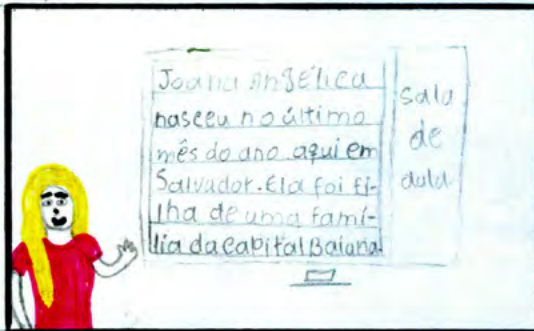 Joana Angélica
nasceu no último
mês do ano aqui em
Salvador. Ela foi fi-
lha de uma famí-
lia da capital Baiana.
sala
de
aula